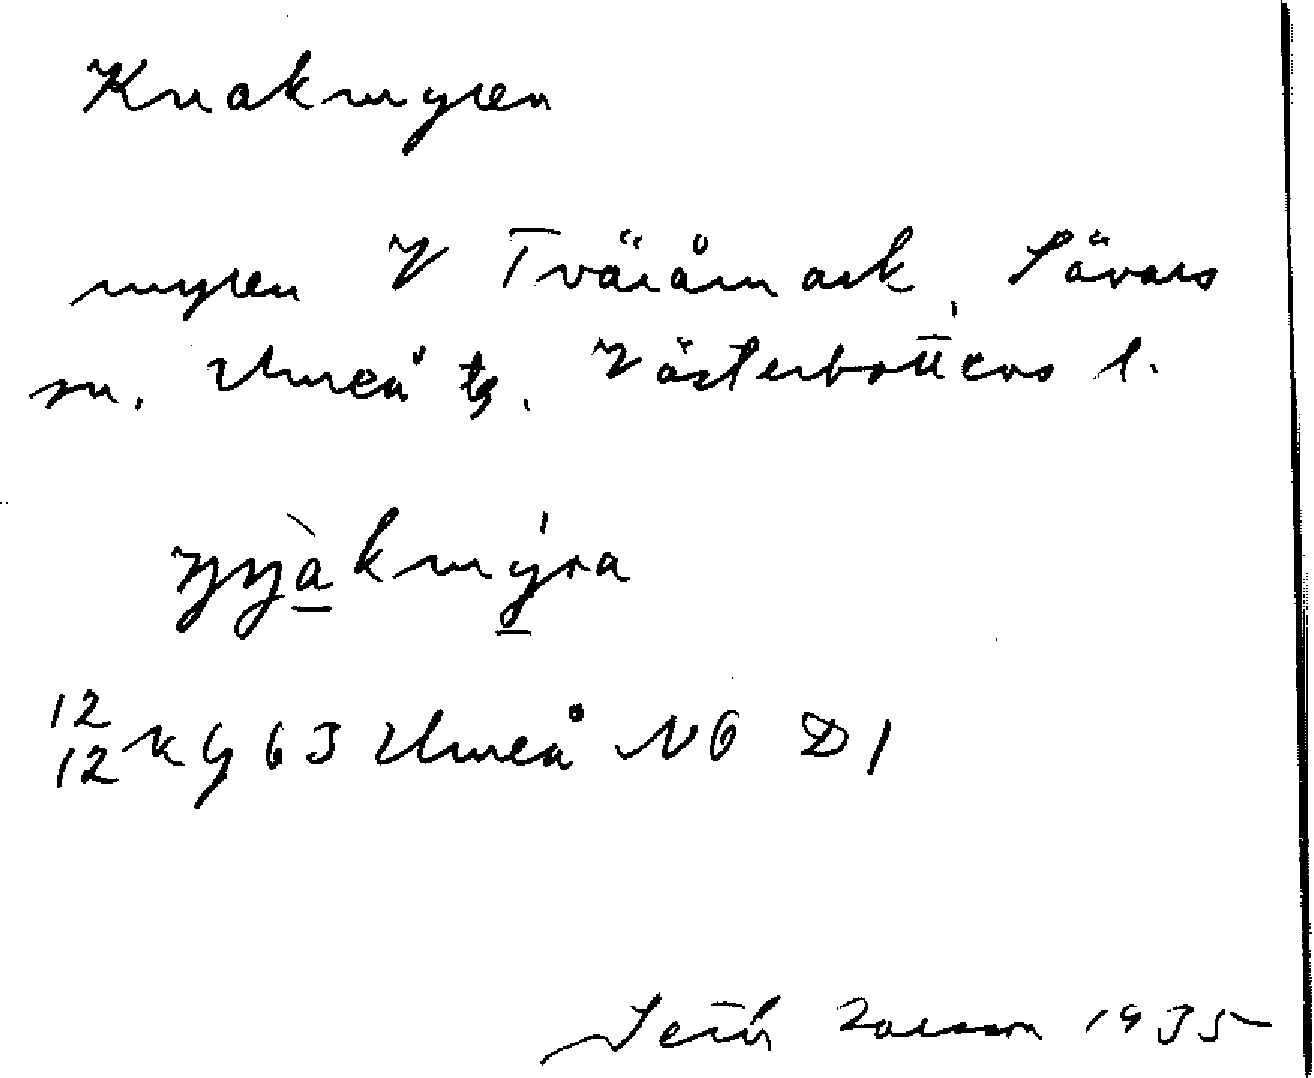 Knakmyren
myren V Tväråmark, Sävars
sn. Umeå tg. Västerbottens l.
k g 63 Umeå NO D 1
12
12
Seth Larsson 1935